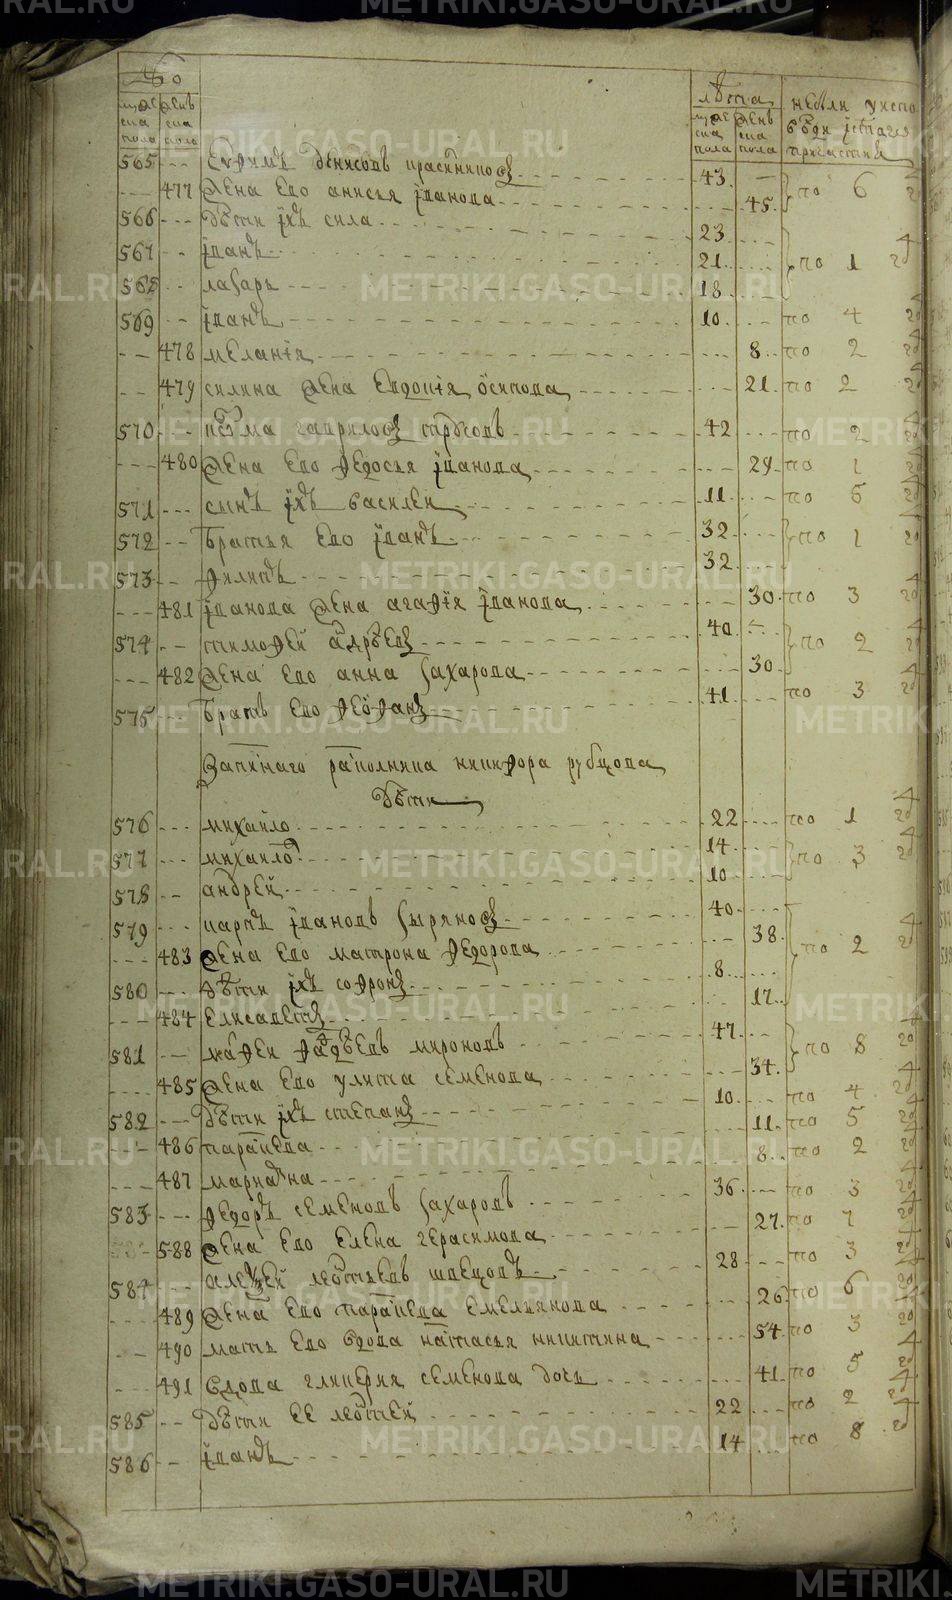 METRIKI.GASO-URAL.RU
No
муже ска пола
женъ ска пола
лѣта
муже ска пола
женъ ска пола
565 Евфимъ денисовъ 43 по 6
477 жена ево анисья їванова 45
566 дѣти їхъ сила 23
567 їванъ 21 по 1
568 лазаръ 18
569 їванъ 10 по 4
478 меланїя 8 по 2
479 силина жена евдокїя осипова 21 по 2
570 козма гаврилов 42 по 2
480 жена ево федосья їванова 29 по 1
571 сынъ їхъ василеи 11 по 5
572 братья ево їванъ 32 по 1
573 филипъ 32
481 їванова жена агафїя їванова 30 по 3
574 тимофеи 40 по 2
482 жена ево анна захарова 30
575 братъ ево 41 по 3
работника никифора рубцова
дѣти
576 михаило 22 по 1
577 михаило 14 по 3
578 андреи 10
579 карпъ ївановъ зырянов 40
483 жена ево матрона федорова 38 по 2
580 дѣти їхъ софронъ 8
484 елисавета 17
581 мироновъ 47 по 8
485 жена ево улита семенова 34
582 дѣти їхъ степанъ 10 по 4
486 парасковя 11 по 5
487 мариамна 8 по 2
583 федоръ семеновъ захаровъ 36 по 3
588 жена ево елена герасимова 27 по 1
584 алексеи леонтьевъ швецовъ 28 по 3
489 жена ево параскева емельянова 26 по 6
490 мать ево вдова настасья никитина 54 по 3
491 вдова гликерия семенова дочь 41 по 5
585 дѣти ее леонтеи 22 по 2
586 їванъ 14 по 8